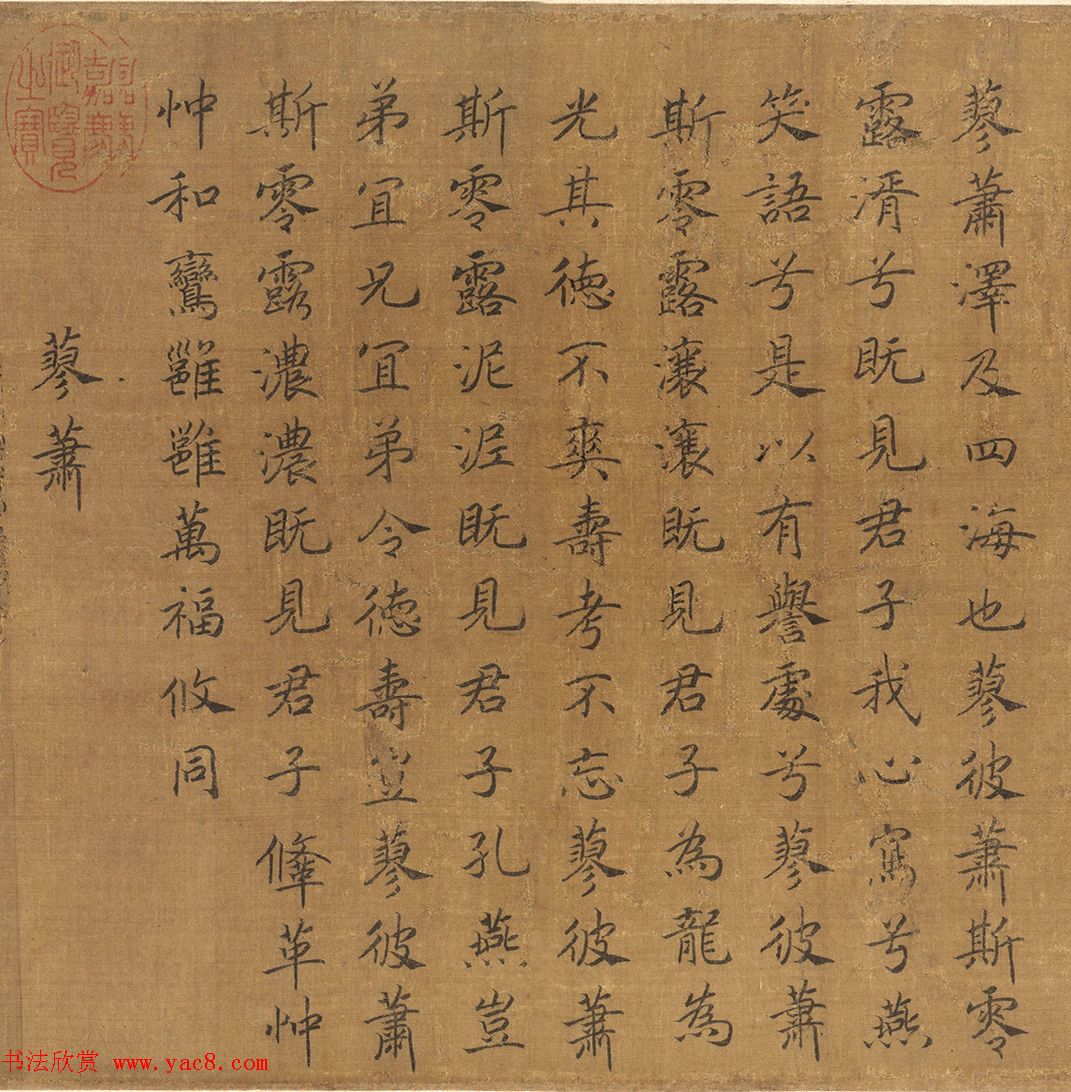 蓼蕭澤及四海也蓼彼蕭斯零
露湑兮既見君子我心寫兮燕
笑語兮是以有譽處兮蓼彼蕭
斯零露瀼瀼既見君子為龍為
光其徳不爽壽考不忘蓼彼蕭
斯零露泥泥既見君子孔燕豈
弟冝兄冝弟令徳壽豈蓼彼蕭
斯零露濃濃既見君子鞗革忡
忡和鸞雝雝萬福攸同
蓼蕭
嘉慶御覽之寶
书法欣赏 www.yac8.com